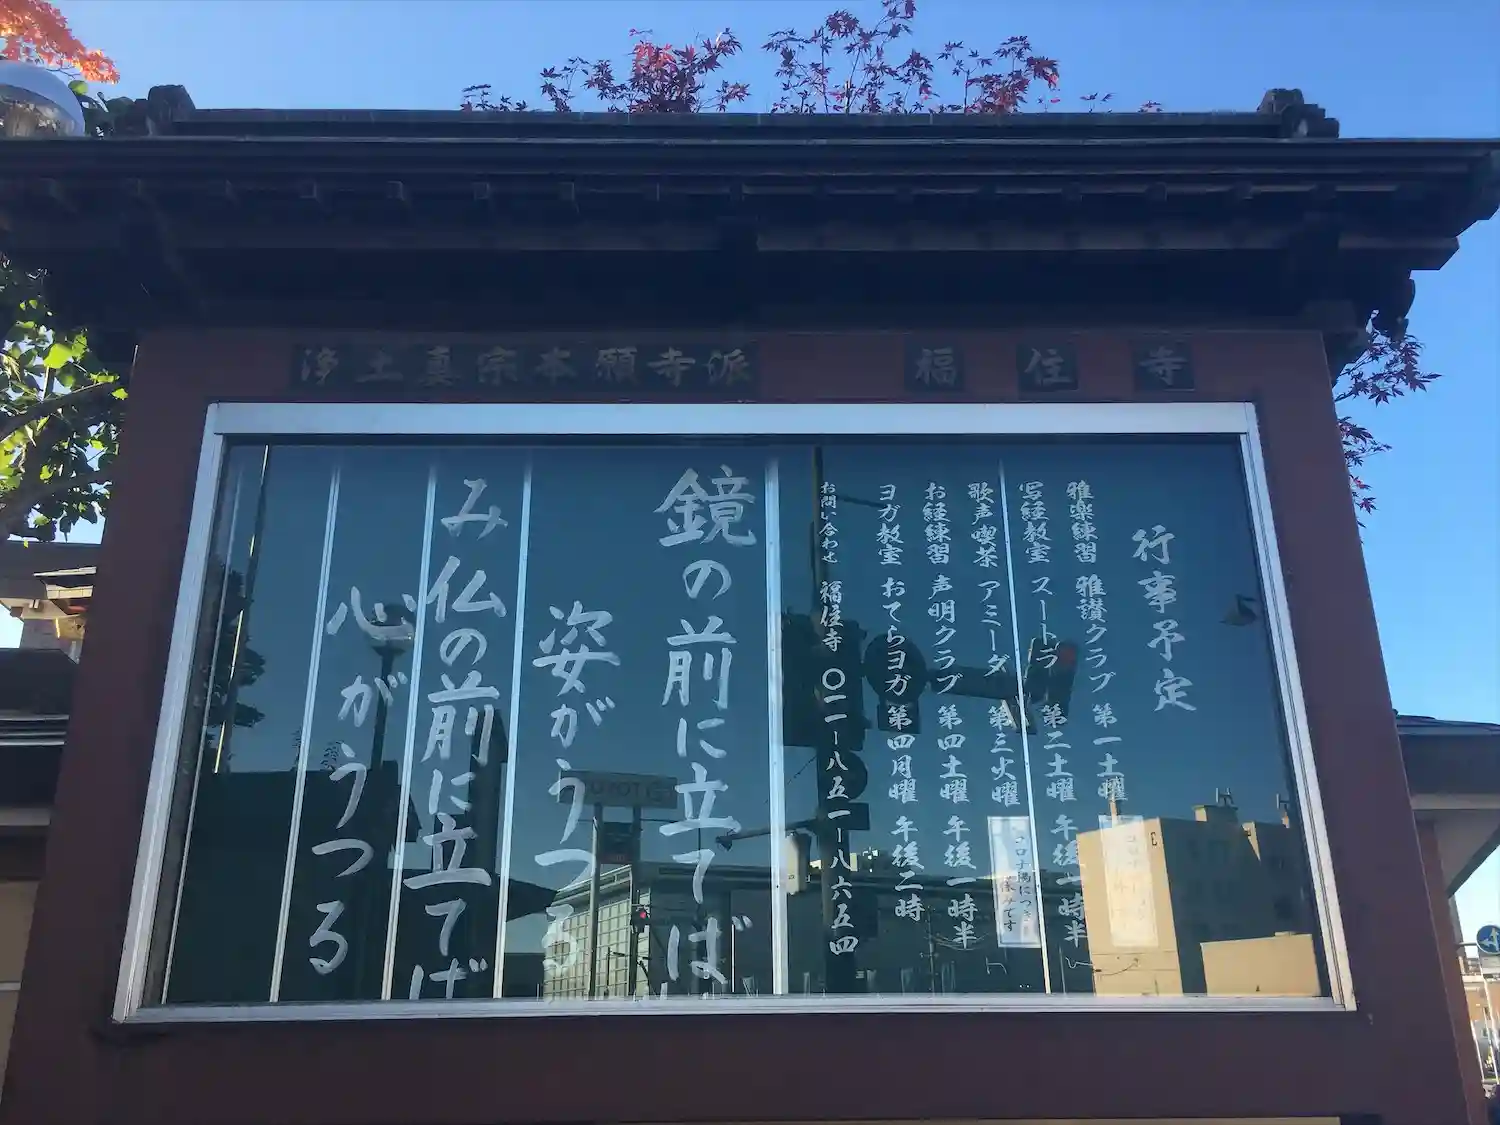 浄土真宗本願寺派 福住寺
行事予定
雅楽練習 雅讃クラブ 第一土曜
写経教室 スートラ 第二土曜 午後一時半
歌声喫茶 アミーダ 第三火曜
コロナ禍につき
お休みです
お経練習 声明クラブ 第四土曜 午後一時半
ヨガ教室 おてらヨガ 第四月曜 午後二時
お問い合わせ 福住寺 〇一一-八五一-八六五四
鏡の前に立てば
姿がうつる
み仏の前に立てば
心がうつる